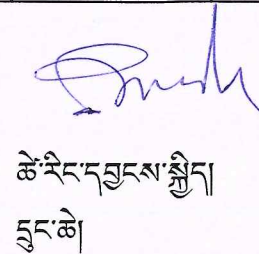 ཚེ་རིང་དབྱངས་སྐྱིད།
དྲུང་ཆེ།